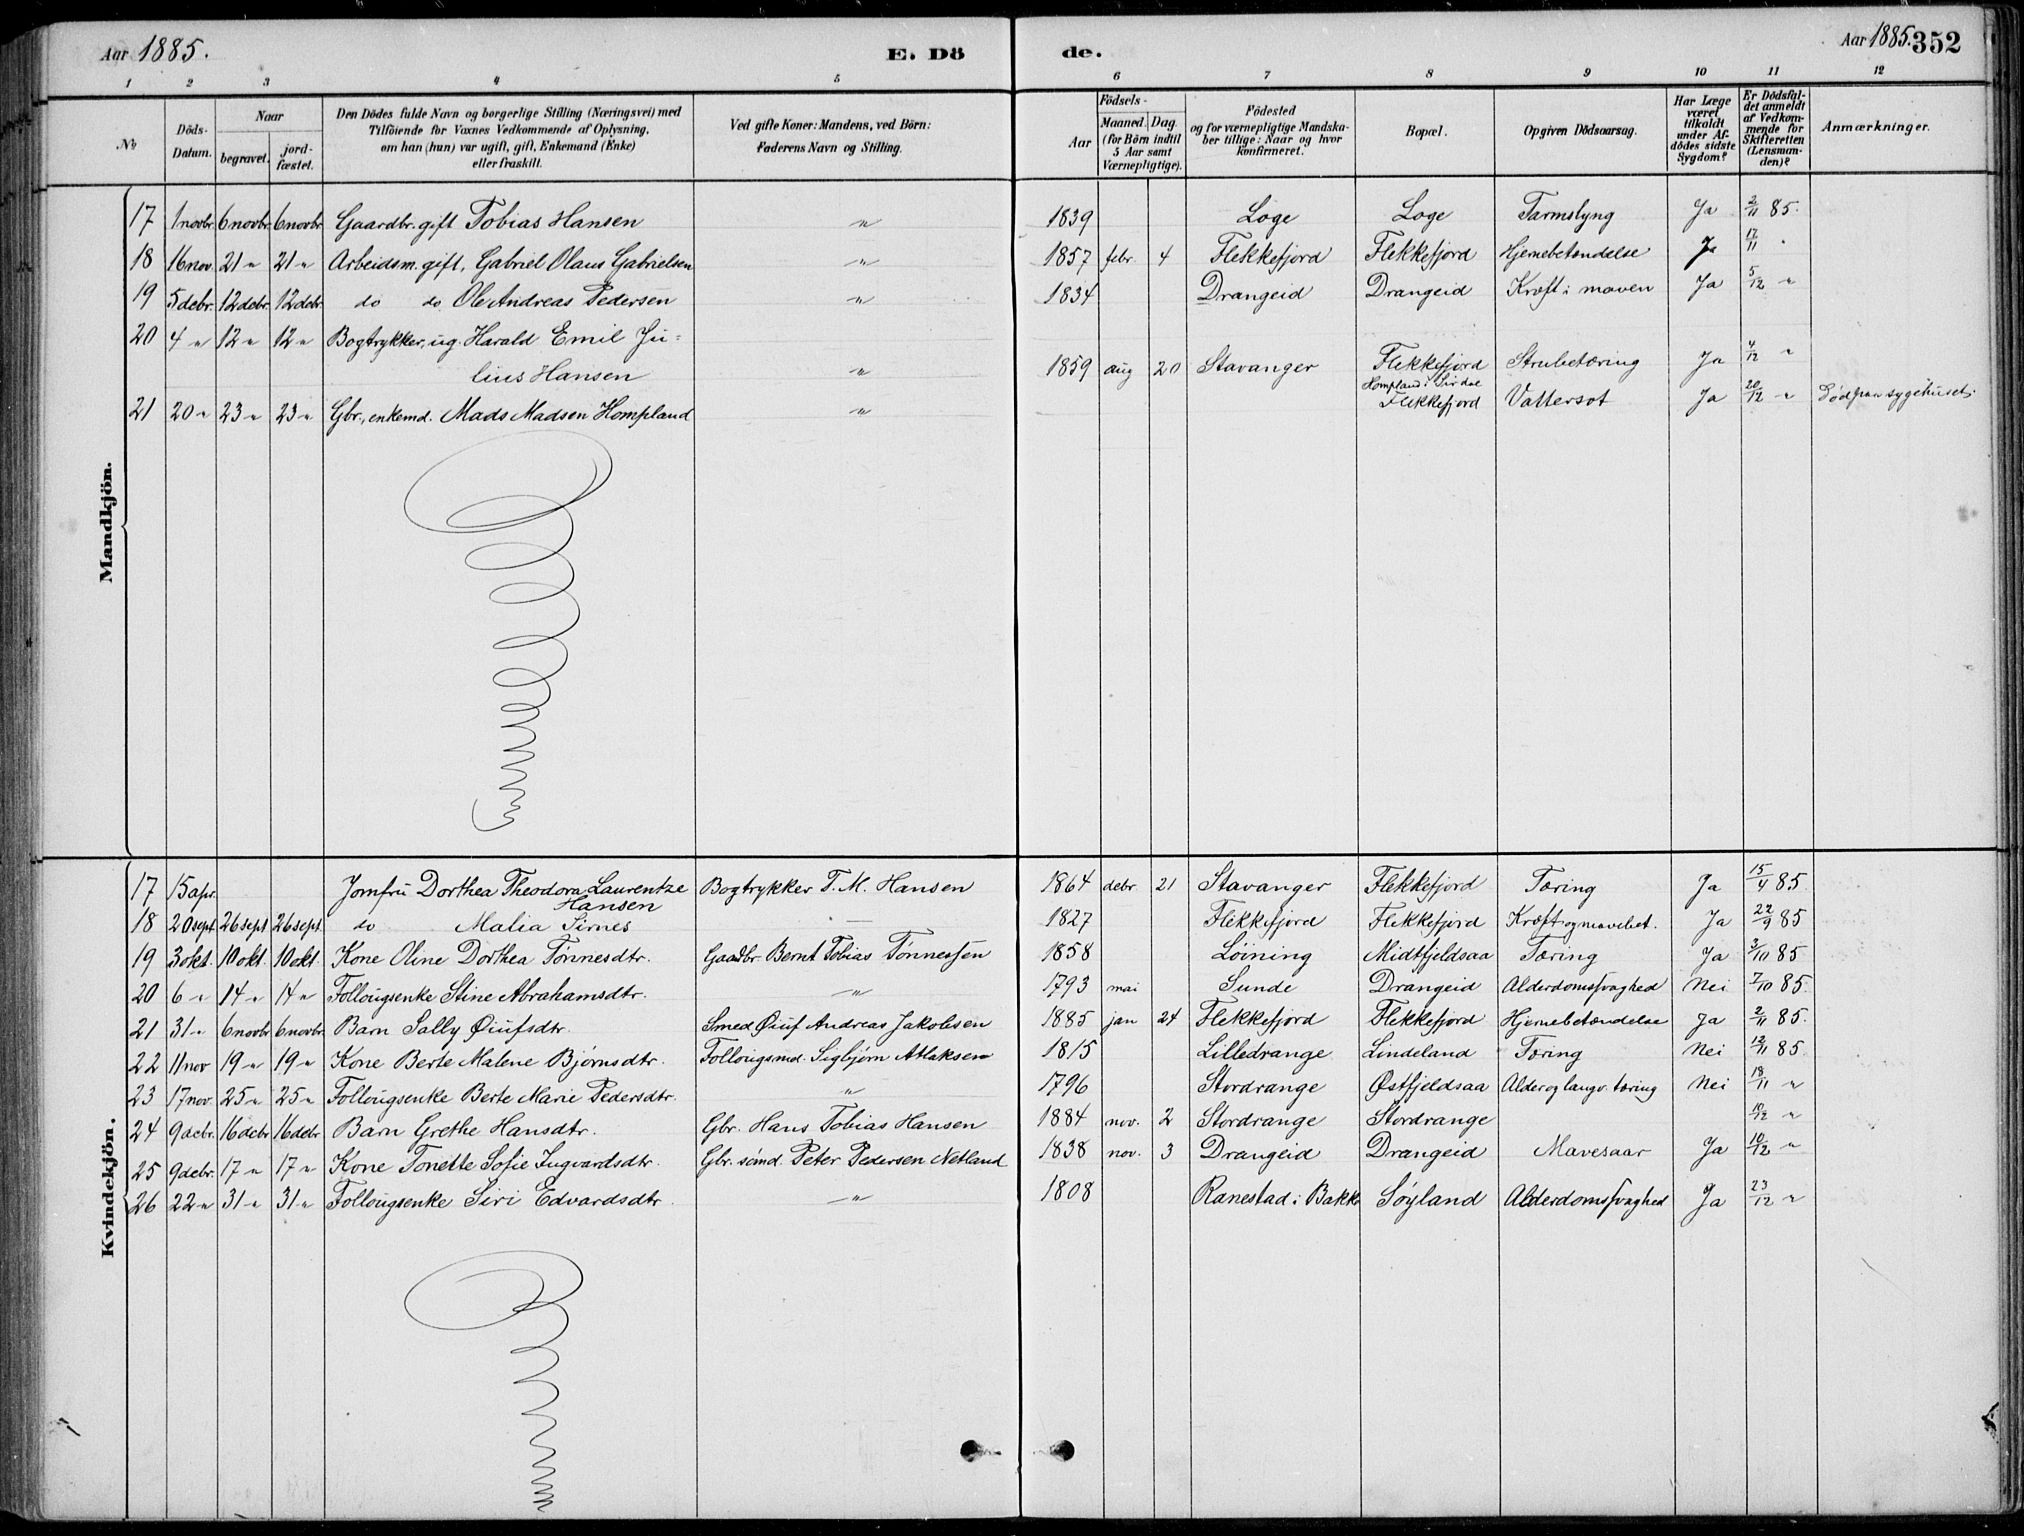 Aar 1885. E. Dö de. Aar 1885. 352
1 2 3 4 5 6 7 8 9 10 11 12
No
Döds-Datum.
Naar
begravet. jordfæstet.
Den Dödes fulde Navn og borgerlige Stilling (Næringsvei) med
Tilföiende for Voxnes Vedkommende af Oplysning,
om han (hun) var ugift, gift, Enkemand (Enke)
eller fraskilt.
Ved gifte Koner: Mandens, ved Börn:
Faderens Navn og Stilling.
Födsels-
Aar Maaned. Dag.
(for Börn indtil
5 Aar samt
Værnepligtige).
Födested
og for værnepligtige Mandskaber tillige: Naar og hvor
konfirmeret.
Bopæl.
Opgiven Dödsaarsag.
Har Læge
været
tilkaldt
under Afdödes sidste
Sygdom?
Er Dödsfaldet anmeldt
af Vedkommende for
Skifteretten
(Lensmanden)?
Anmærkninger.
Mandkjön.
17 1 novbr. 6 novbr. 6 novbr. Gaardbr. gift Tobias Hansen " 1839 Loge Loge Tarmslyng Ja 2/11 85.
18 16 nov. 21 " 21 " Arbeidsm. gift, Gabriel Olaus Gabrielsen " 1857 febr. 4 Flekkefjord Flekkefjord Hjernebetændelse Ja 17/11 "
19 5 debr. 12 debr. 12 debr. do do Ole Andreas Pedersen " 1834 Drangeid Drangeid Kræft i maven Ja 5/12 "
20 4 " 12 " 12 " Bogtrykker, ug. Harald Emil Ju=
lius Hansen " 1859 aug 20 Stavanger Flekkefjord Strubetæring Ja 4/12 "
21 20 " 23 " 23 " Gbr., enkemd. Mads Madsen Hompland " Hompland i Sirdal Flekkefjord Vattersot Ja 20/12 " Død paa sygehuset.
Kvindekjön.
17 15 apr. Jomfru Dorthea Theodora Laurentze
Hansen Bogtrykker T. M. Hansen 1864 debr 21 Stavanger Flekkefjord Tæring Ja 15/4 85.
18 20 sept 26 sept 26 sept. do Malia Sirnes — 1827 Flekkefjord Flekkefjord Kræft og Ja 22/9 85
19 3 okt. 10 okt. 10 okt. Kone Oline Dorthea Tønnesdtr. Gaadbr. Bernt Tobias Tønnessen 1858 Løining Midtfjeldsaa Tæring Ja 3/10 85
20 6 " 14 " 14 " Follougsenke Stine Abrahamsdtr. " 1793 mai Sunde Drangeid Alderdomssvaghed Nei 7/10 85.
21 31 " 6 novbr 6 novbr. Barn Sally Øiufsdtr. Smed Øiuf Andreas Jakobsen 1885 jan 24 Flekkefjord Flekkefjord Hjernebetændelse Ja 2/11 85.
22 11 nov 19 " 19 " Kone Berte Malene Bjørnsdtr. Follougsmd. Sigbjørn Atlaksen 1815 Lilledrange Lindeland Tæring Nei 12/11 85.
23 17 nov. 25 " 25 " Follougsenke Berte Marie Pedersdtr. " 1796 Stordrange Østfjeldsaa Alder og langv. tæring Nei 18/11 "
24 9 debr. 16 debr 16 debr Barn Grethe Hansdtr. Gbr. Hans Tobias Hansen 1884 nov. 2 Stordrange Stordrange 10/12 "
25 9 debr. 17 " 17 " Kone Tonette Sofie Ingvardsdtr. Gbr. sømd. Peter Pedersen Netland 1838 nov. 3 Drangeid Drangeid Mavesaar Ja 10/12 "
26 22 " 31 " 31 " Follougsenke Siri Edvardsdtr " 1808 Ranestad i Bakke Søyland Alderdomssvaghed Ja 23/12 "